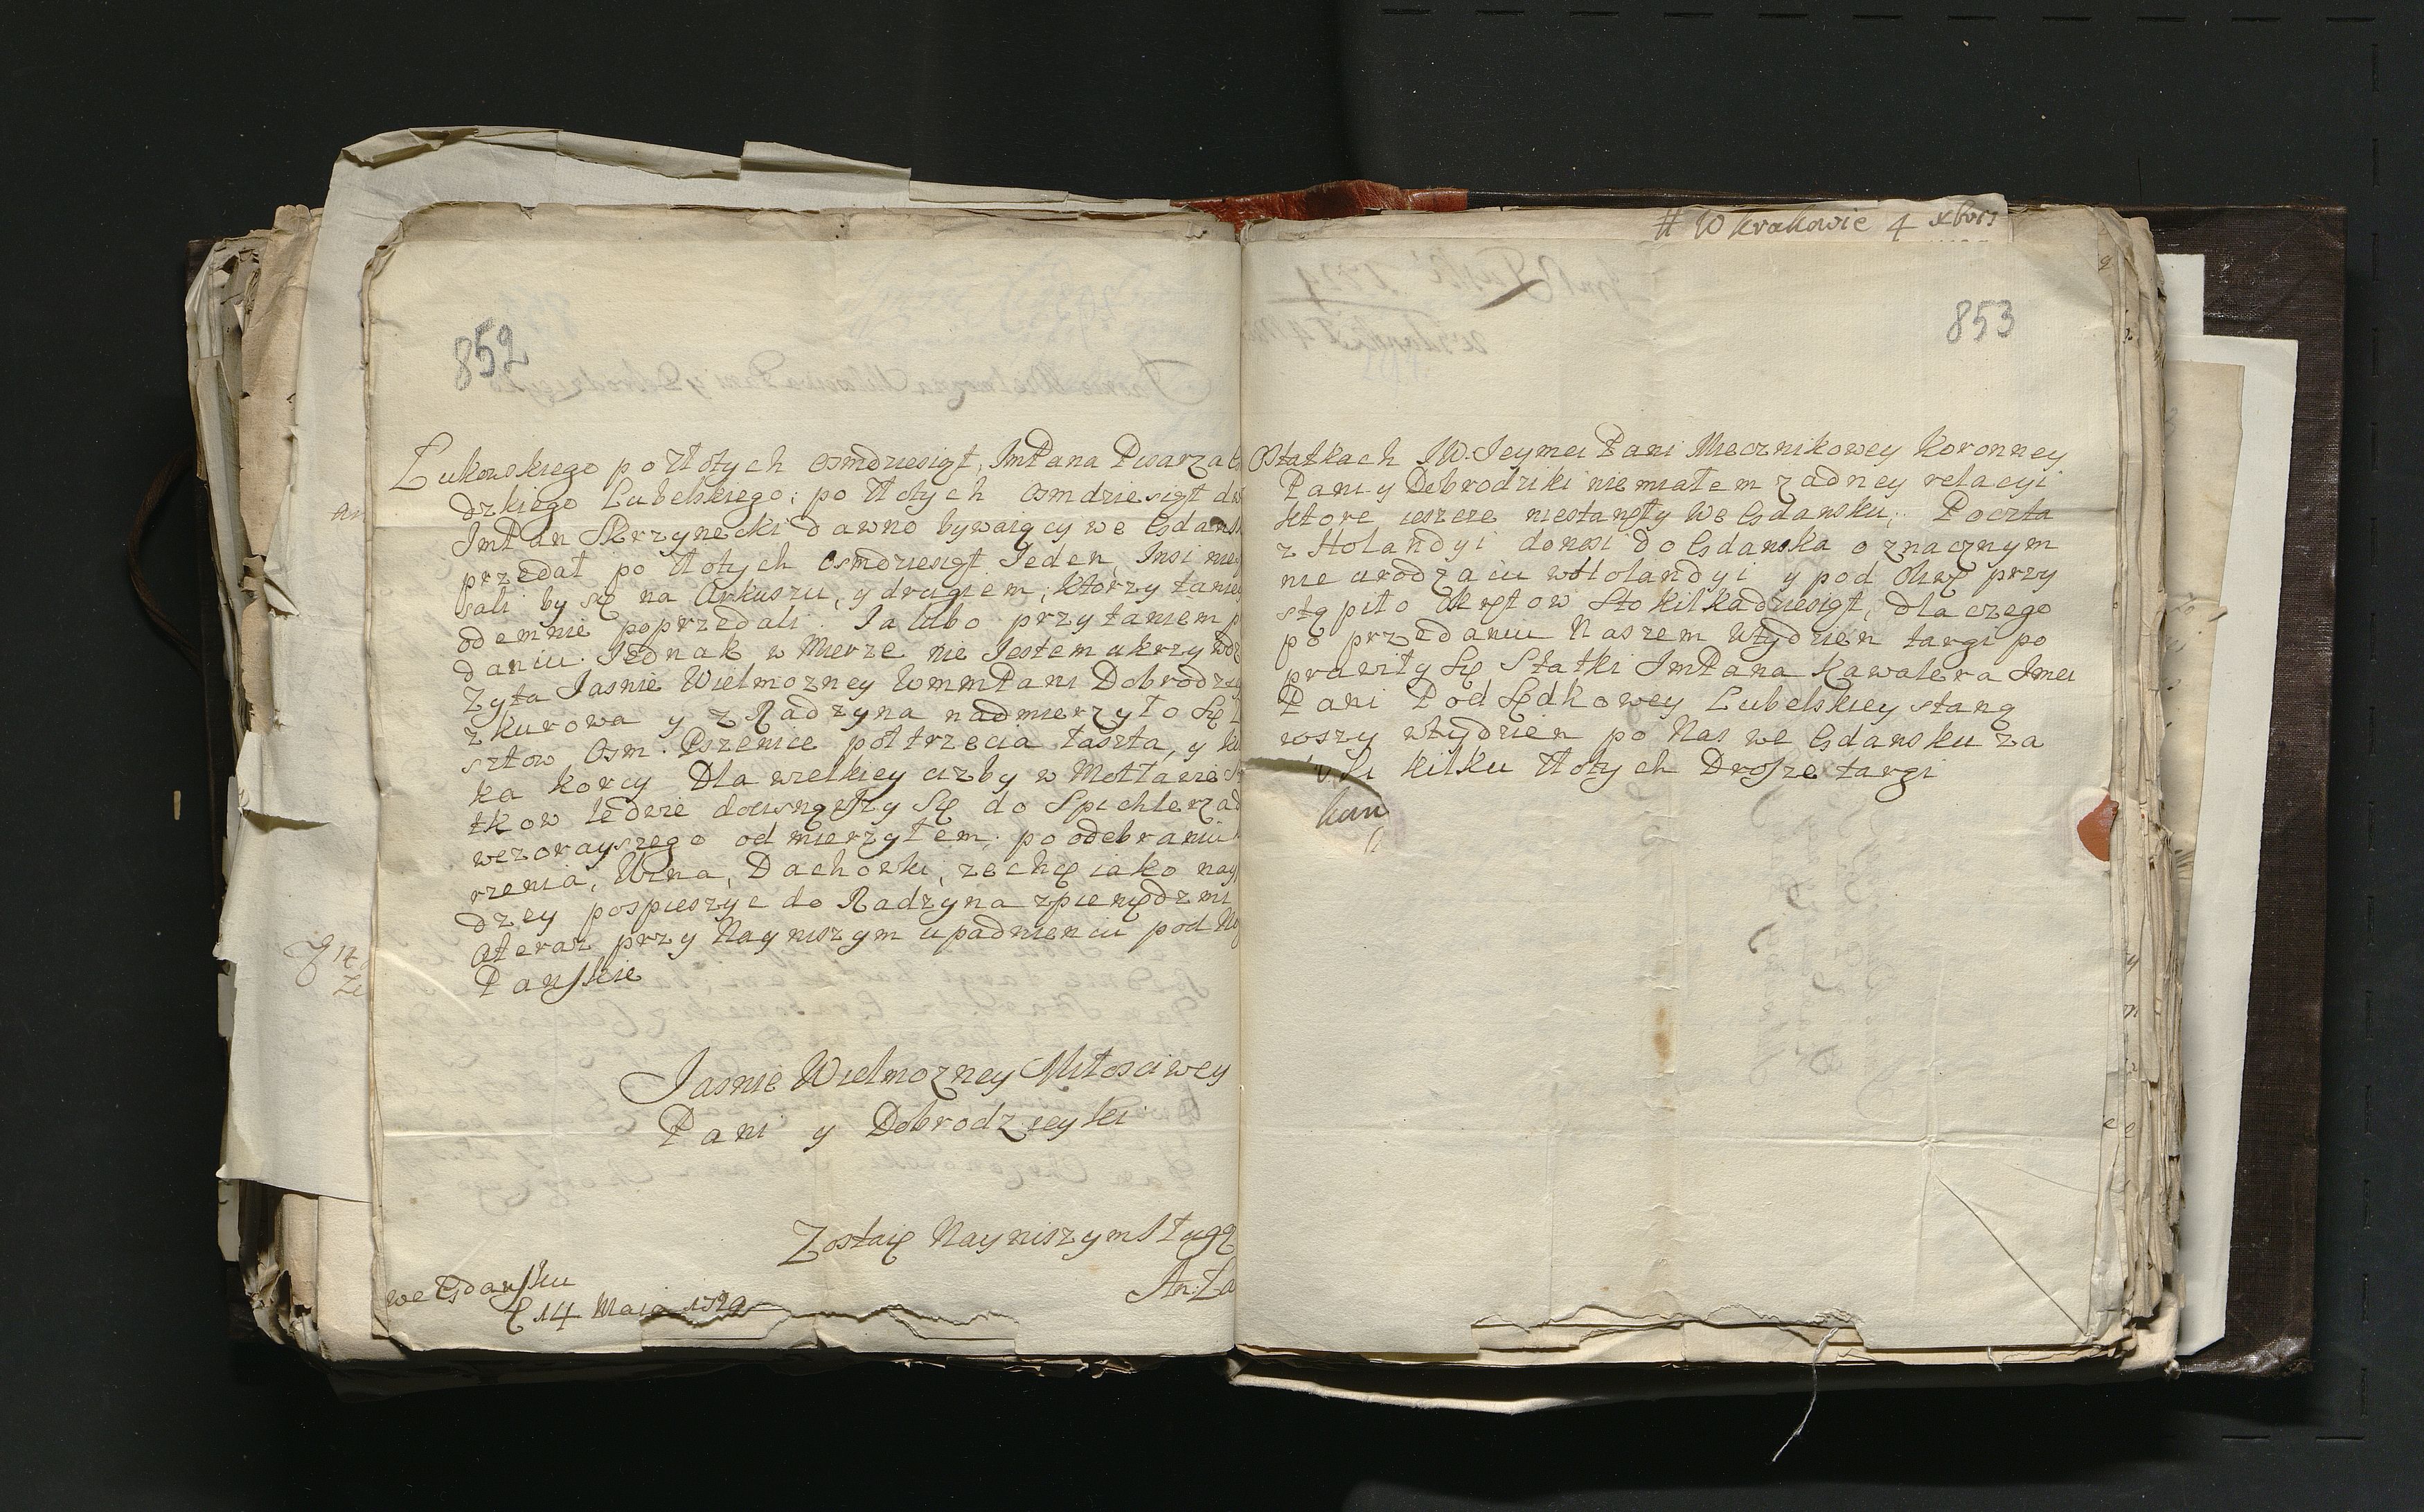 852
Lukowskiego po Złotych osmdziesiąt, ImPana Pisarza
dzkiego Lubelskiego; po Złotych osmdziesiąt
ImPan Skrzynecki dawno bywaiący we Gdans
przedał po Złotych osmdziesiąt Jeden, Insi
sali by się na Arkuszu, y drugiem, ktorzy taniey
odemnie poprzedali. Ja lubo przy taniem
daniu. Jednak w Mierze nie Jestem ukrzywdz
Zyta Jasnie Wielmozney WmmPani Dobrodzi
z kurowa y z Radzyna nadmierzyło się
sztow osm. Pszenice połtrzecia łaszta, y
ka korcy Dla wielkiey cizby w Mottawie
tkow ledwie docisnąwszy się do Spichlerza
wczorayszego odmierzyłem; po odebraniu
rzenia, Wina, Dachowki, zechcę iako nay
dzey pospieszyc do Radzyna zpieniędzmi
Ateraz przy Nayniszym upadnieniu pod
Panskie
Jasnie Wielmozney Miłosciwey
Pani y Dobrodzieyki
Zostaię Nayniszym Sługą
An: Za
we Gdansku
14 Maia 1729
# W krakowie 4 xbris
853
Ostatkach JW. Jeymci Pani Miecznikowey Koronney
Pani y Dobrodziki niemiałem zadney relacyi
ktore ieszcze niestanęły we Gdansku; Poczta
z Holandyi donosi do Gdanska o znacznym
nie urodzaiu w Holandyi y pod Oliwę przy
stąpiło okrętow Sto kilkadziesiąt, dla czego
po przedaniu Naszem wtydzien targi po
prawiły się Statki ImPana Kawalera Imci
Pani Podsędkowey Lubelskiey staną
wszy wtydzien po Nas we Gdansku za
kilku Złotych Drosze targi